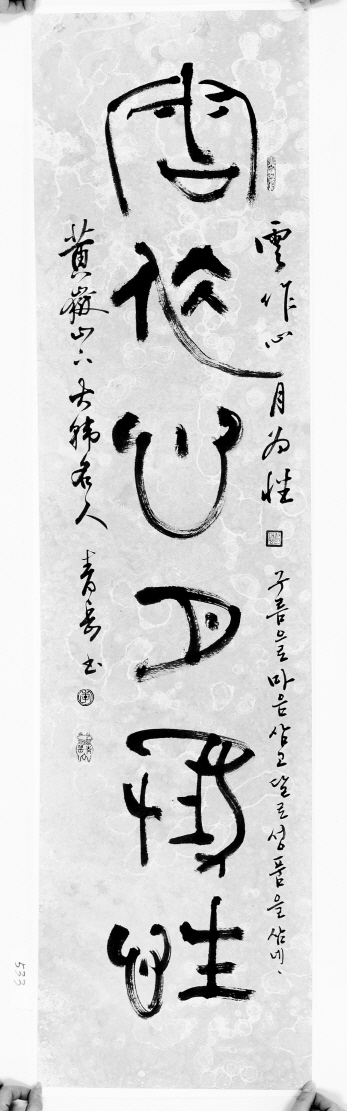 雲作心 月为性 구름으로 마음 삼고 달로 성품을 삼네.
雲作心月爲性
黃嶽山下大韓名人 青岳 书
533